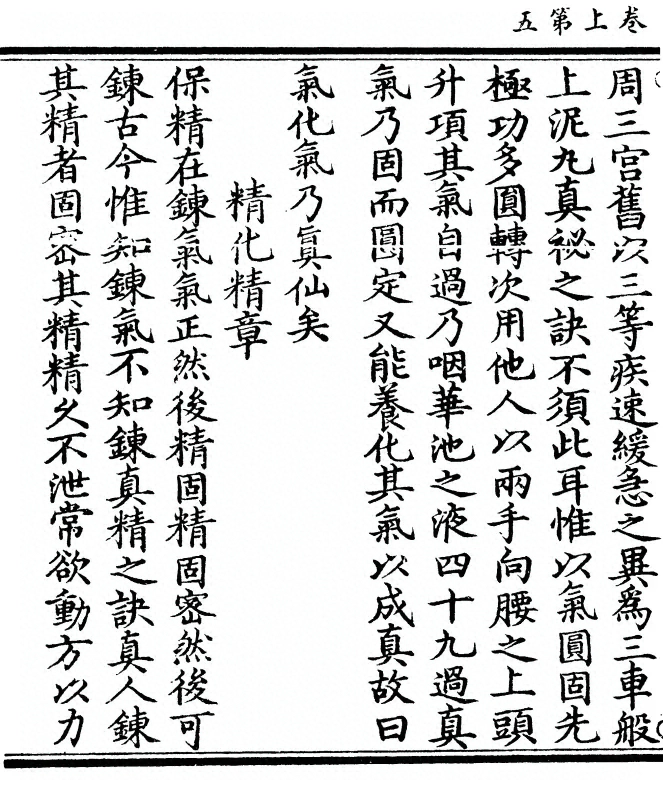 卷上第五
周三宫舊以三等疾速緩急之異為三車般
上泥丸真祕之訣不須此耳惟以氣圓固先
極功多圓轉次用他人以兩手向腰之上頭
升項其氣自過乃咽華池之液四十九過真
氣乃固而圓定又能養化其氣以成真故曰
氣化氣乃眞仙矣
精化精章
保精在鍊氣氣正然後精固精固密然後可
鍊古今惟知鍊氣不知鍊真精之訣真人鍊
其精者固密其精精久不泄常欲動方以力